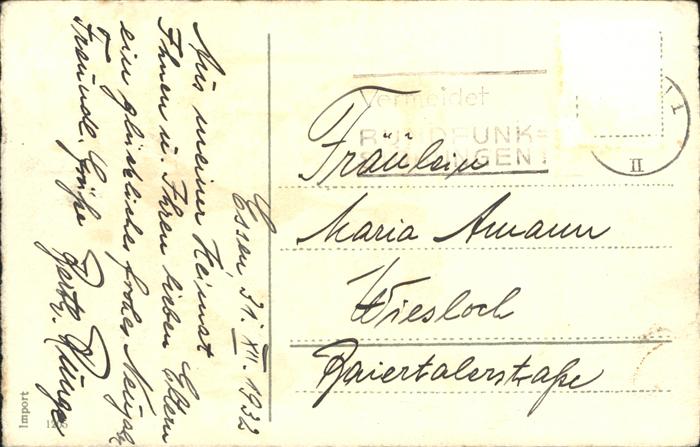 Essen, 31. XII. 1932
Aus meiner Heimat
Ihnen u. Ihren lieben Eltern
ein glückliches frohes Neujahr
Freundl. Grüße
Vermeidet
RUNDFUNK=
II
Fräulein
Maria Amann
Wiesloch
Baiertalerstaße
Import